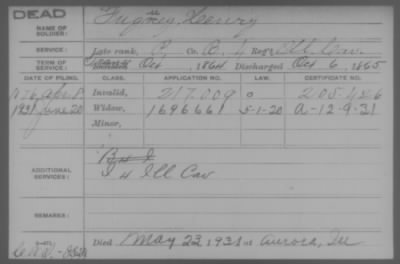 DEAD
NAME OF SOLDIER: Henry
SERVICE: Late rank, P Co. B, 4 Reg't Ill. Cav.
TERM OF SERVICE: Oct , 1864 Discharged Oct 6, 1865
DATE OF FILING. CLASS. APPLICATION NO. LAW. CERTIFICATE NO.
1876 Apr 8 Invalid, 217.009 205.426
1931 June 20 Widow, 1696661 5-1-20 A-12-9-31
Minor,
ADDITIONAL SERVICES: I 4 Ill Cav
REMARKS:
Died May 23 1931 at Aurora, Ill